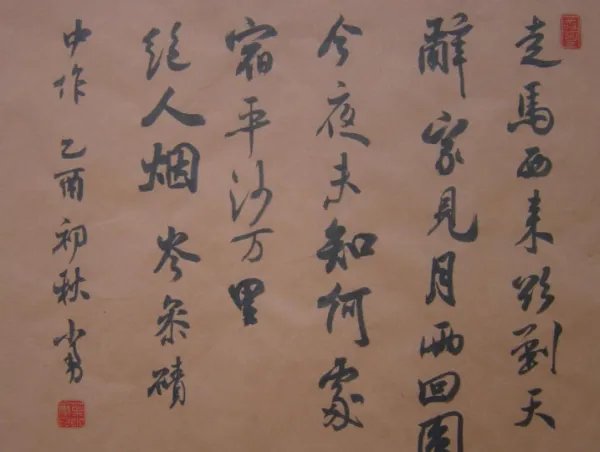 走馬西来欲到天
辭家見月兩回圓
今夜未知何處
宿平沙万里
絕人烟 岑參磧
中作 乙酉初秋 小勇